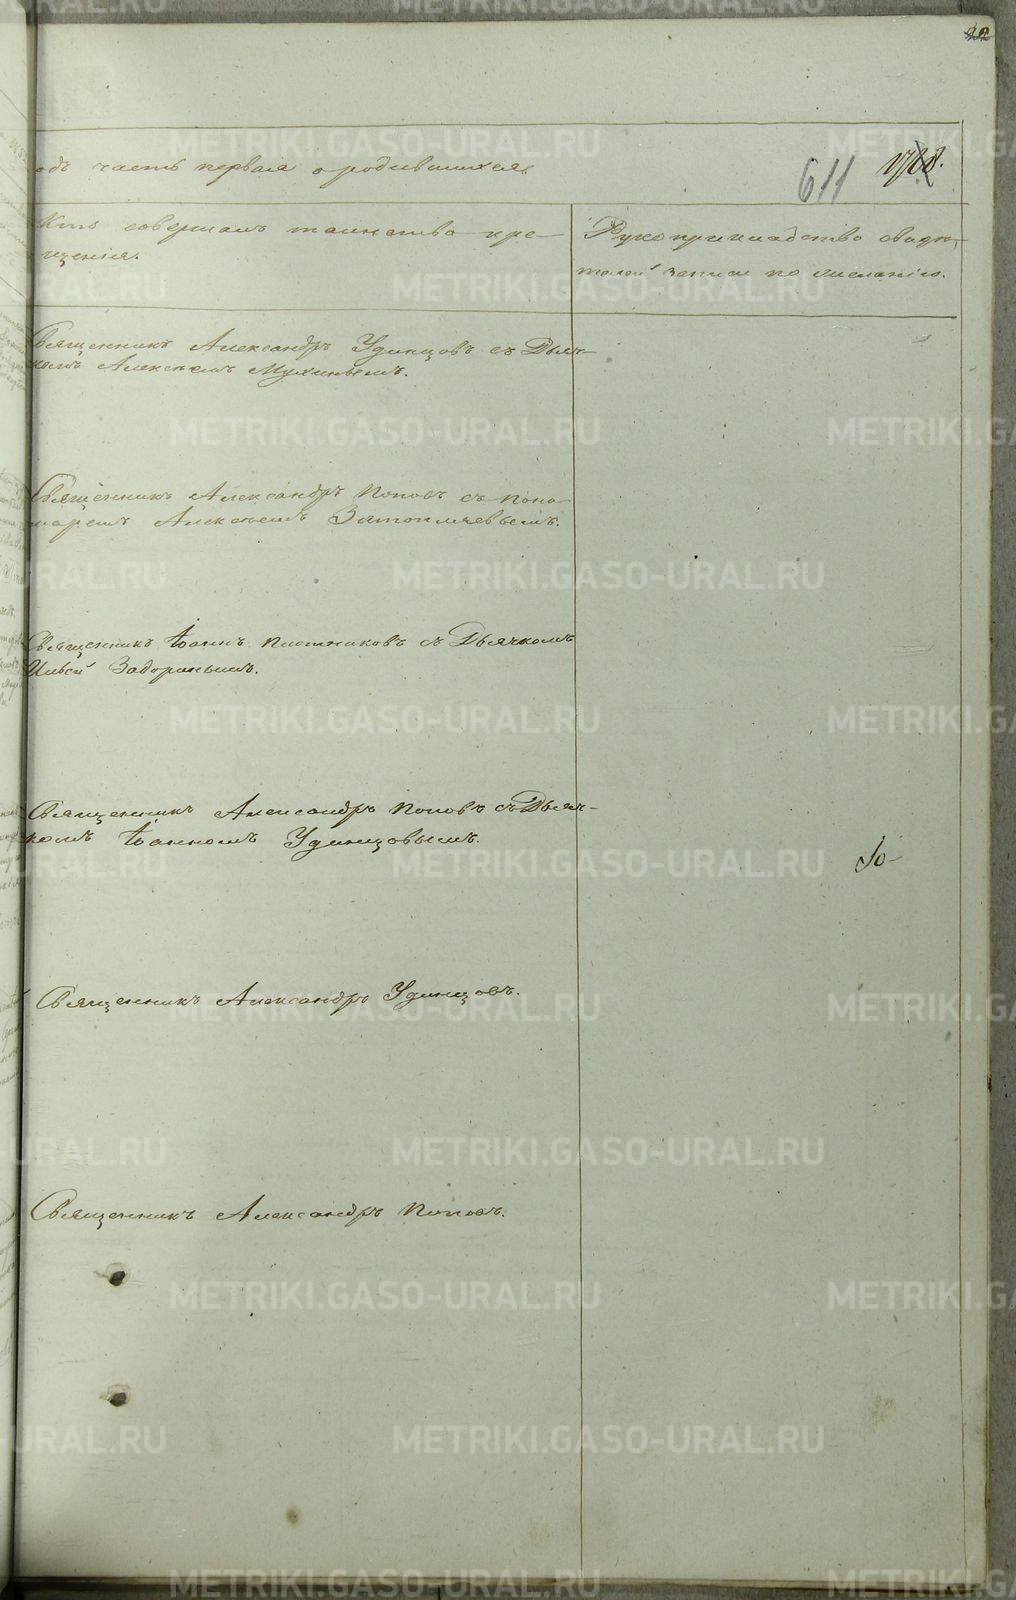 одъ часть первая о родившихся.
611
Кто совершалъ таинство кре-
щенія.
Рукоприкладство свидѣ-
телей записи по желанію.
Священникъ Александръ Удинцовъ съ Дьяч-
комъ Алексѣемъ Мухинымъ.
Священникъ Александръ Поповъ съ Поно-
маремъ Алексѣемъ
Священникъ Іоаннъ Пляшниковъ съ Дьячкомъ
Ильей Задоринымъ.
Священникъ Александръ Поповъ съ Дьяч-
комъ Іоанномъ Удинцовымъ.
Священникъ Александръ Удинцовъ.
Священникъ Александръ Поповъ.
METRIKI.GASO-URAL.RU